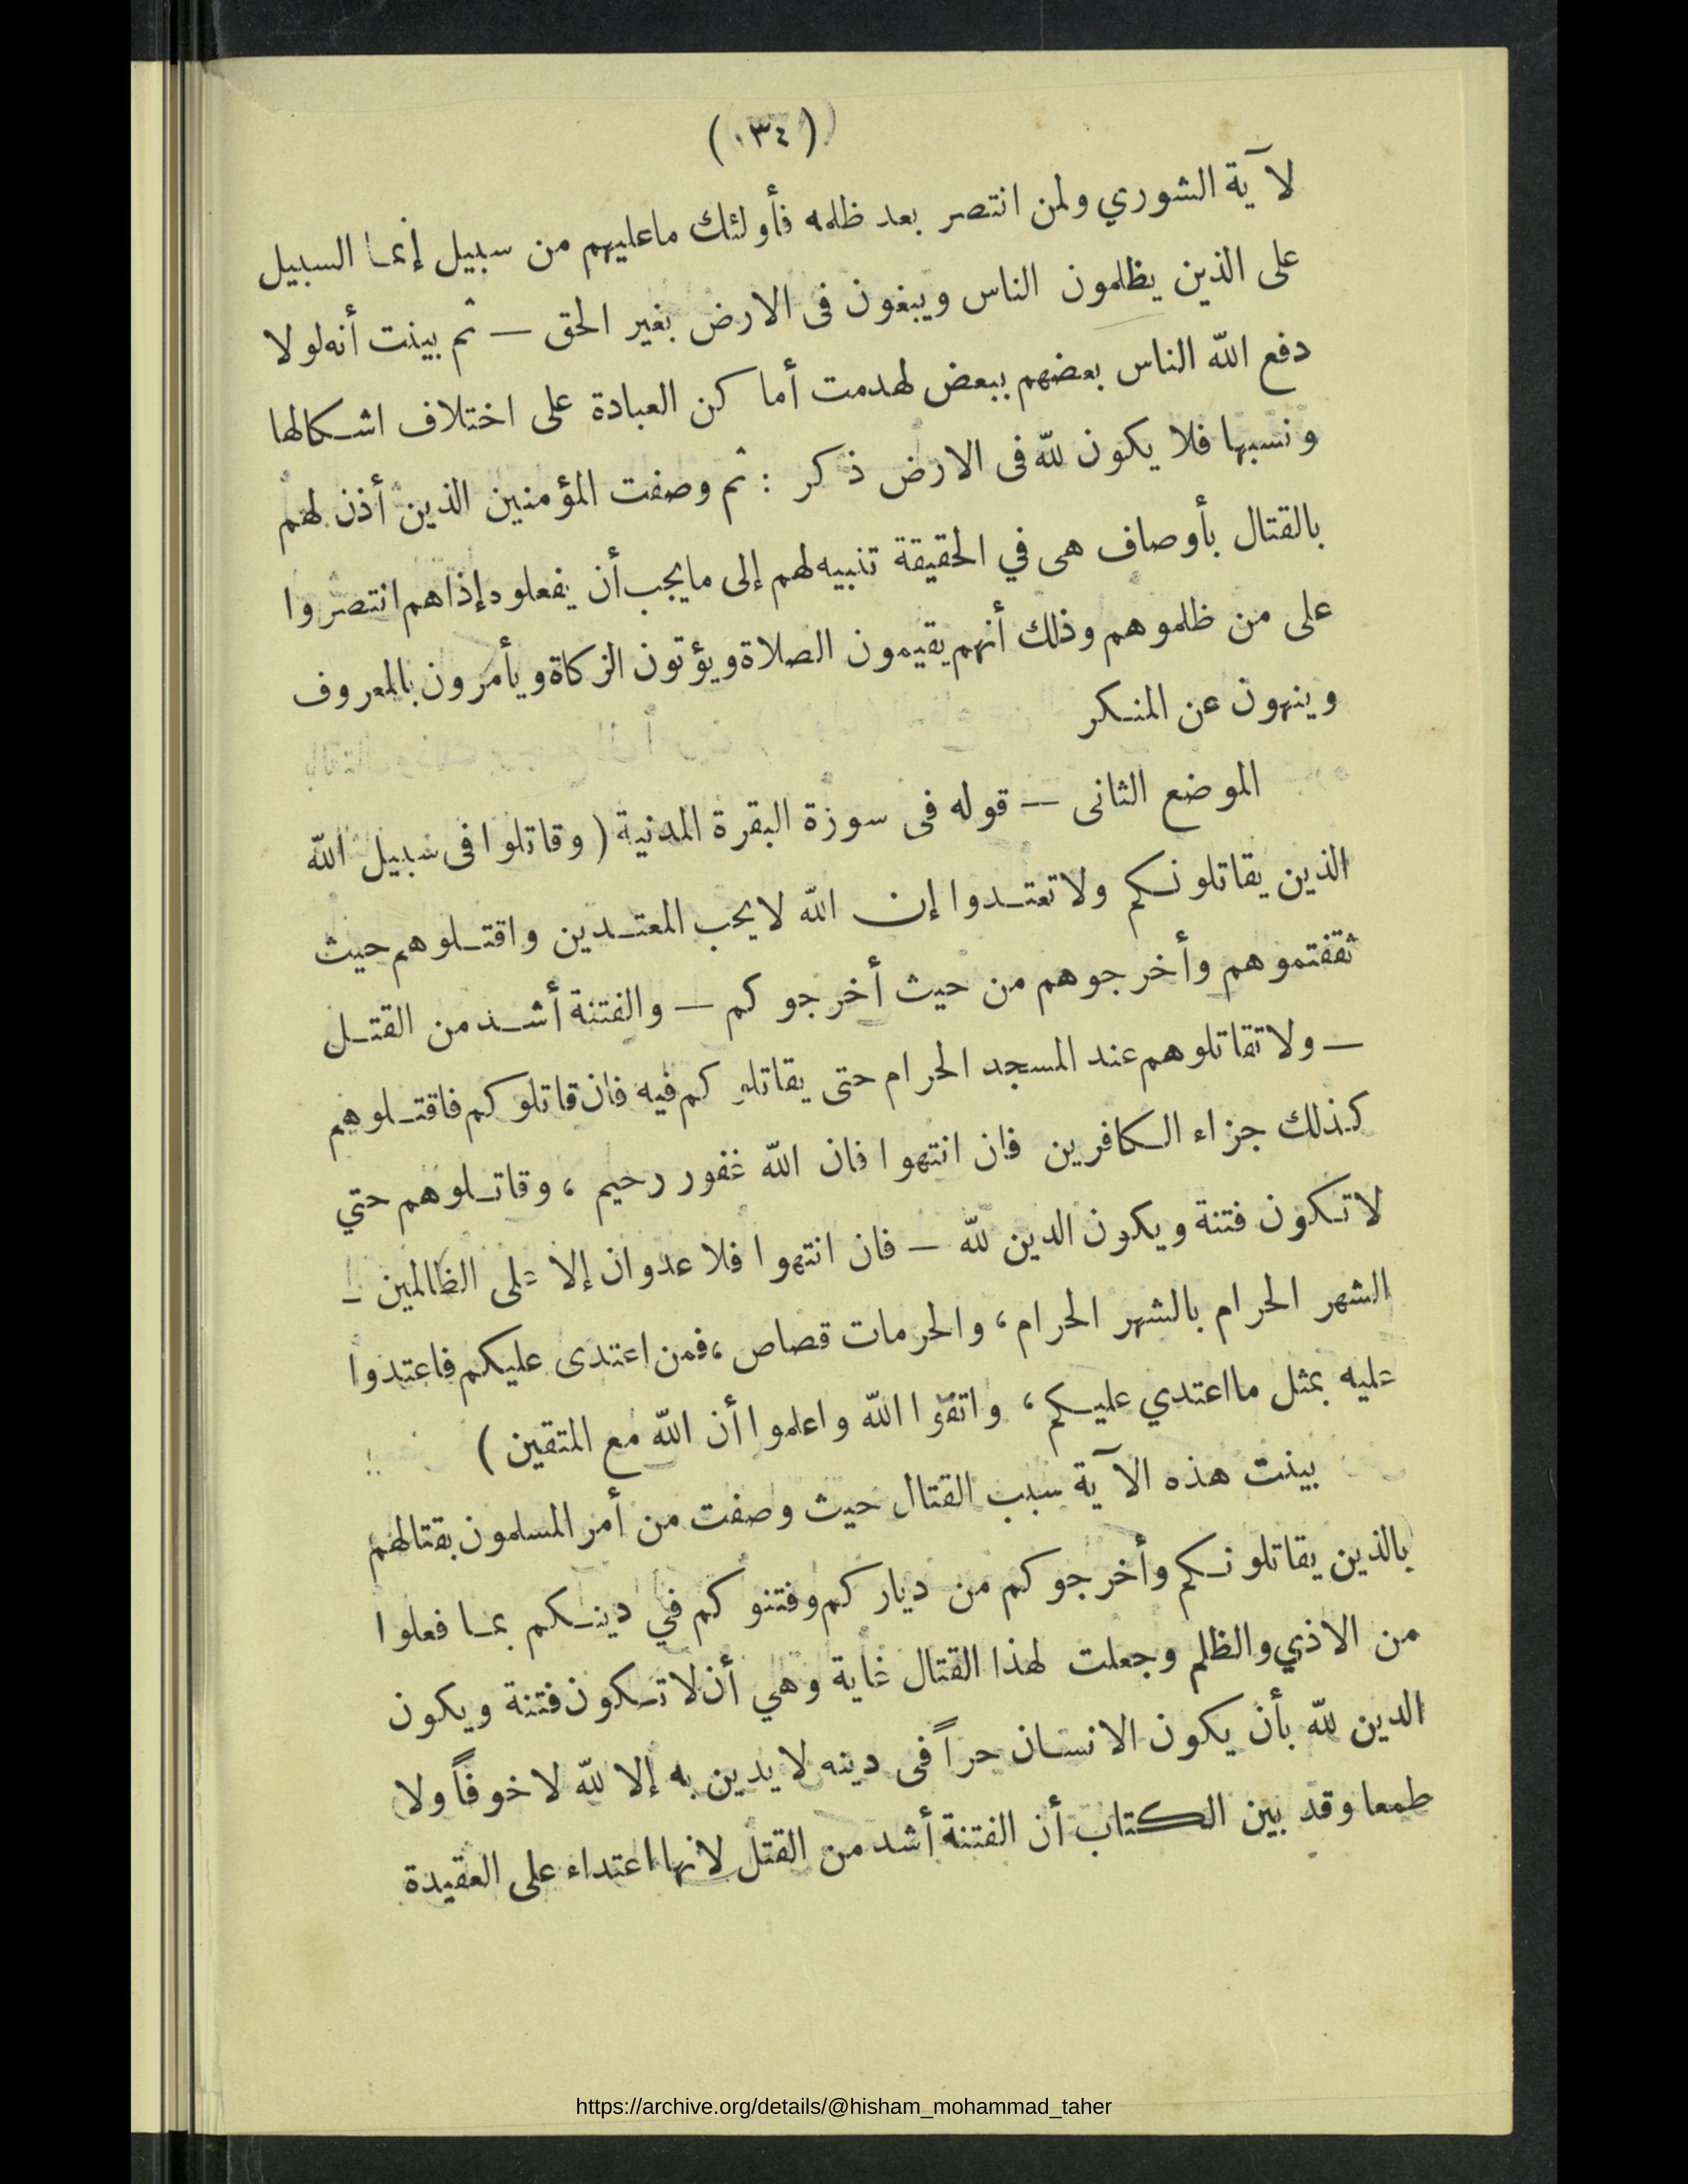 (٠٣٤)
لآية الشوري ولمن انتصر بعد ظلمه فأولئك ماعليهم من سبيل إنما السبيل
على الذين يظلمون الناس ويبغون فى الارض بغير الحق — ثم بينت أنه لولا
دفع الله الناس بعضهم ببعض لهدمت أماكن العبادة على اختلاف اشكالها
ونسبها فلا يكون لله فى الارض ذكر : ثم وصفت المؤمنين الذين أذن لهم
بالقتال بأوصاف هى في الحقيقة تنبيه لهم إلى مايجب أن يفعلوه إذا هم انتصروا
على من ظلموهم وذلك أنهم يقيمون الصلاة ويؤتون الزكاة ويأمرون بالمعروف
وينهون عن المنكر
الموضع الثانى — قوله فى سورة البقرة المدنية ( وقاتلوا فى سبيل الله
الذين يقاتلونكم ولا تعتدوا إن الله لا يحب المعتدين واقتلوهم حيث
ثقفتموهم وأخرجوهم من حيث أخرجوكم — والفتنة أشد من القتل
— ولا تقاتلوهم عند المسجد الحرام حتى يقاتلوكم فيه فان قاتلوكم فاقتلوهم
كذلك جزاء الكافرين فان انتهوا فان الله غفور رحيم ، وقاتلوهم حتي
لا تكون فتنة ويكون الدين لله — فان انتهوا فلا عدوان إلا على الظالمين —
الشهر الحرام بالشهر الحرام ، والحرمات قصاص ، فمن اعتدى عليكم فاعتدوا
عليه بمثل ما اعتدي عليكم ، واتقوا الله واعلموا أن الله مع المتقين )
بينت هذه الآية سبب القتال حيث وصفت من أمر المسلمون بقتالهم
بالذين يقاتلونكم وأخرجوكم من دياركم وفتنوكم في دينكم بما فعلوا
من الاذي والظلم وجعلت لهذا القتال غاية وهي أن لا تكون فتنة ويكون
الدين لله بأن يكون الانسان حراً فى دينه لا يدين به إلا لله لا خوفاً ولا
طمعا وقد بين الكتاب أن الفتنة أشد من القتل لانها اعتداء على العقيدة
https://archive.org/details/@hisham_mohammad_taher